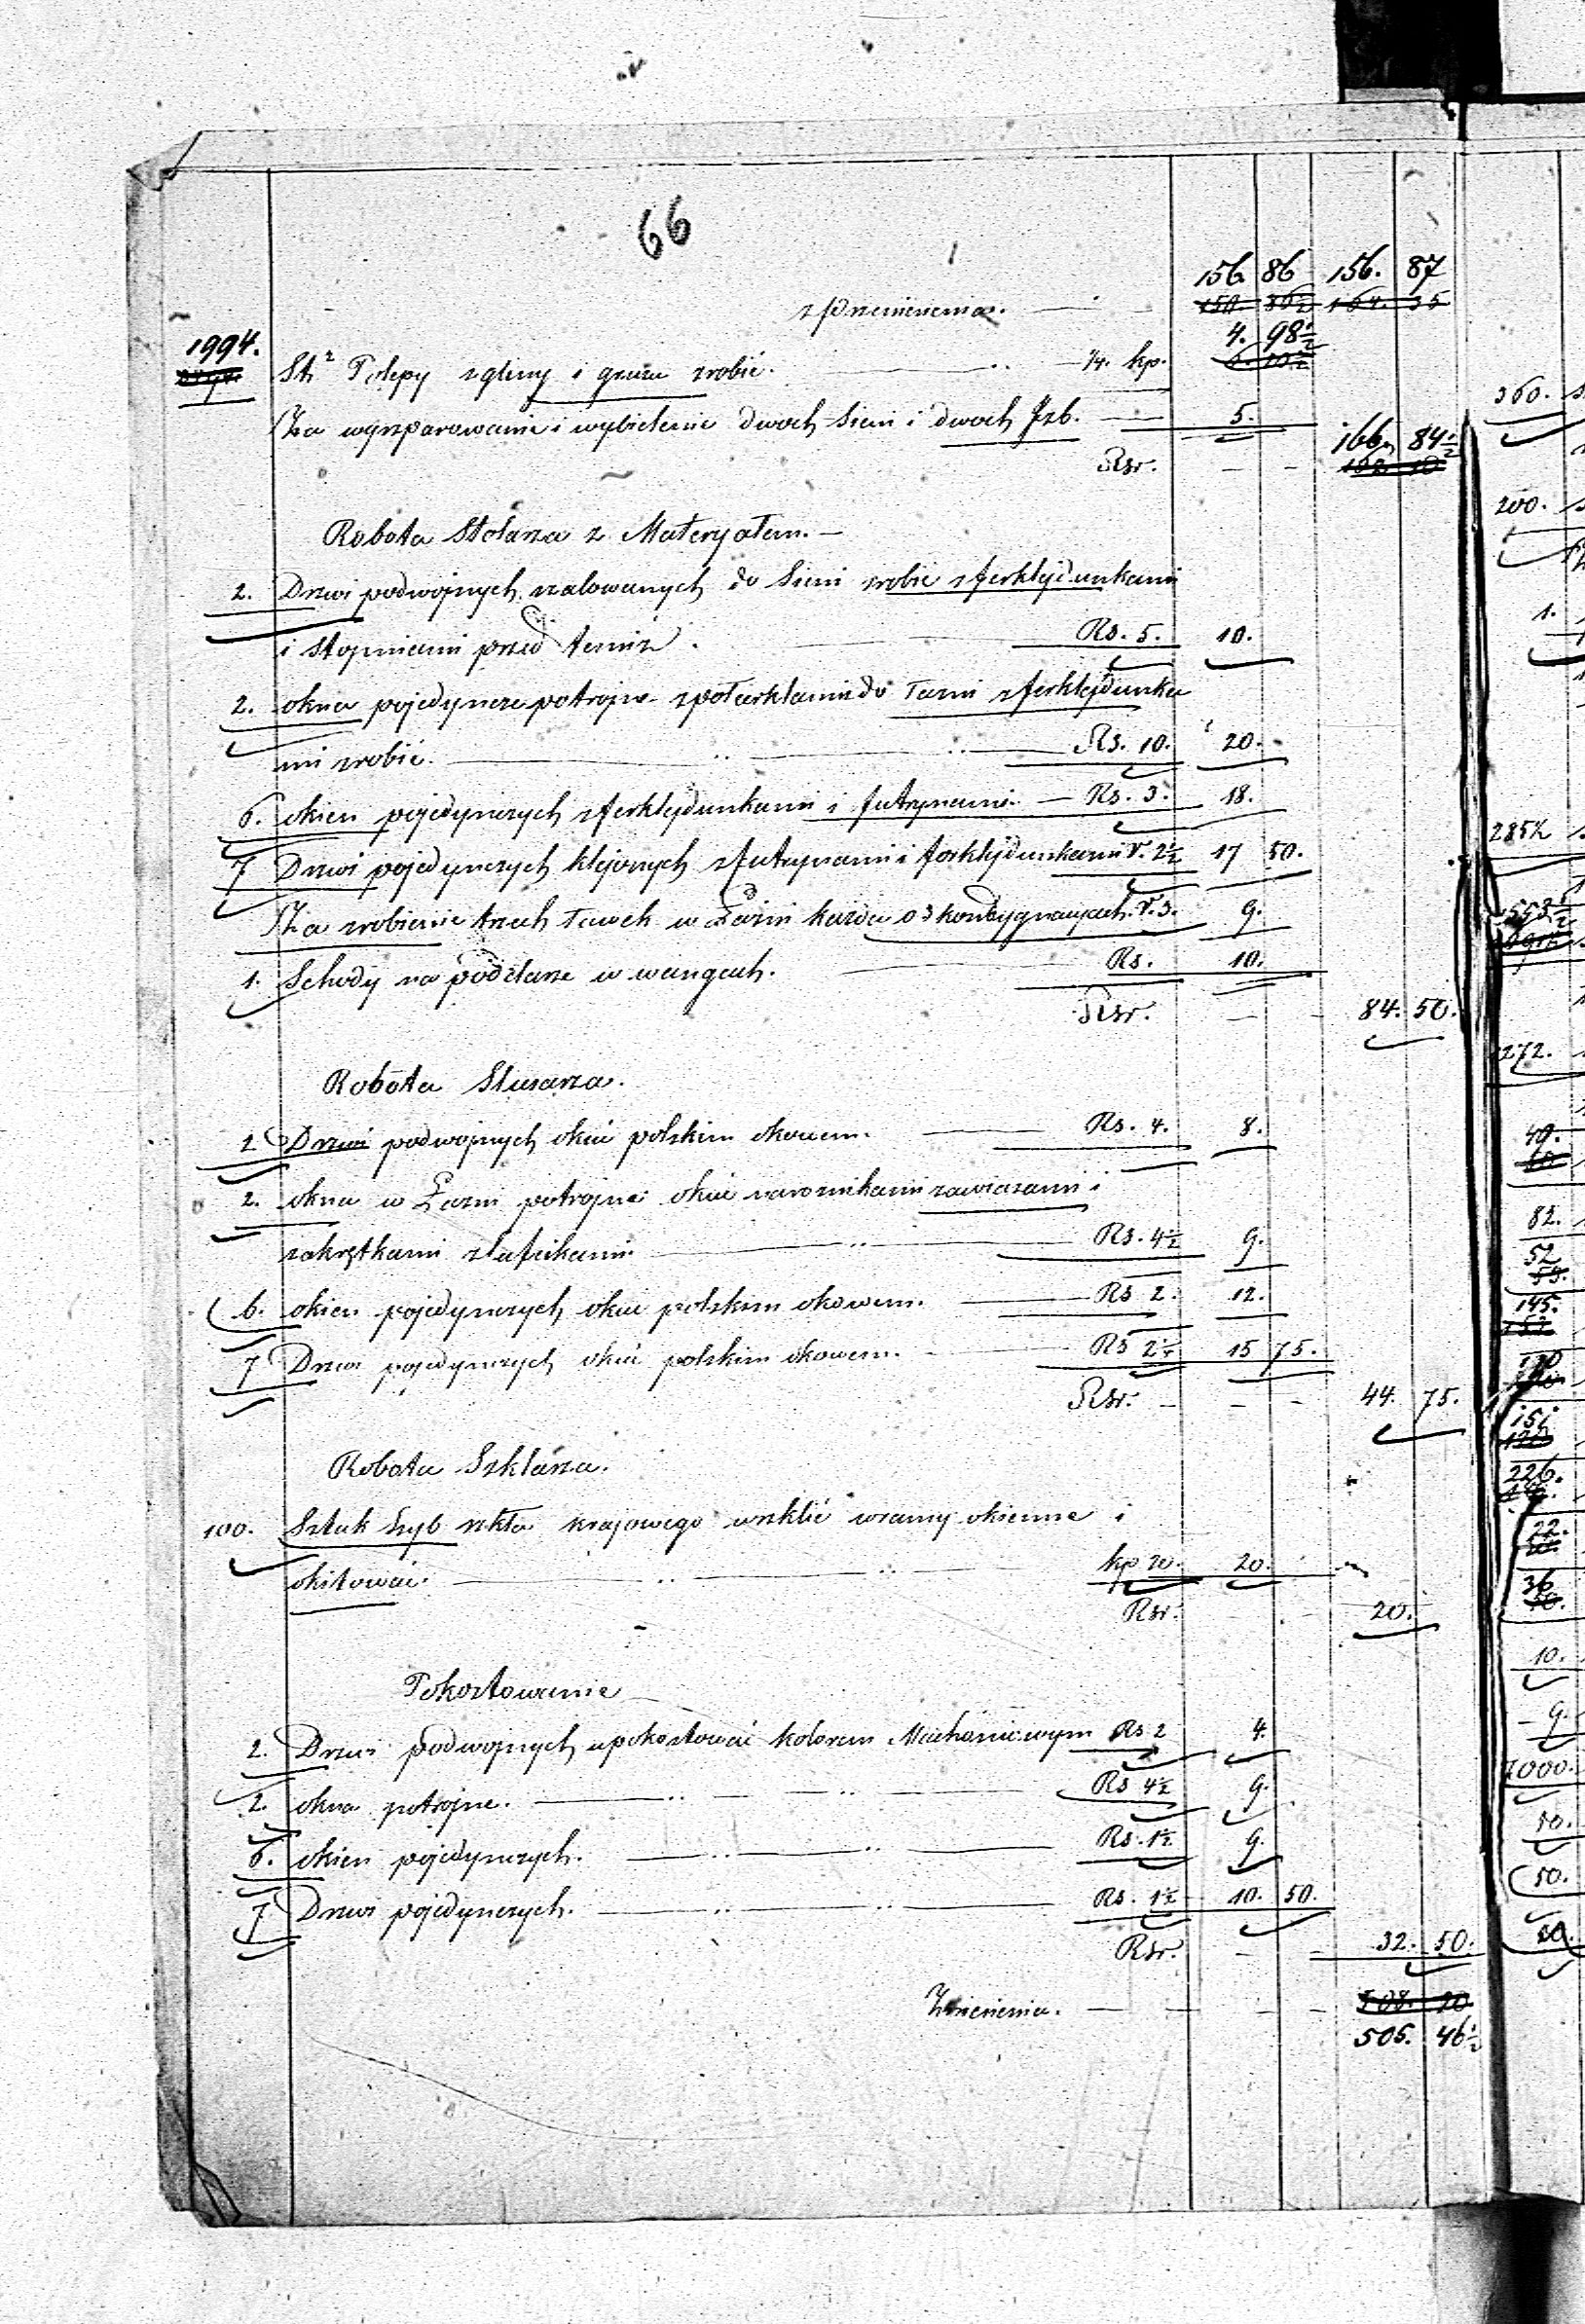 66
156. 86 156. 87
z przeniesienia.
4. 98½
1994. St² Polepy z gliny i gruzu zrobić. ¼. kp.
Za wyszparowanie i wybielenie dwoch Sieni i dwoch Izb. 5.
Rsr. 166. 84½
Robota Stolarza z Materyałem.
2. Drzwi podwojnych szalowanych do Sieni zrobić z ferklejdunkami
i stopniami przed temiż. Rs. 5. 10.
2. okna pojedyncze potrojne z połcyrklami do Łazni z ferklejdunka
mi zrobić. Rs. 10. 20.
6. okien pojedynczych z ferklejdunkami i futrynami. Rs. 3. 18.
7 Drzwi pojedynczych klejonych z futrynami i ferklejdunkami r. 2½ 17 50.
Za zrobienie trzech ławek w Łaźni każda o 3 kondygnacyach. r. 3. 9.
1. Schody na poddasze w wangach. Rs. 10.
Rsr. 84. 50.
Robota Slusarza.
2 Drzwi podwojnych okuć polskim okowem. Rs. 4. 8.
2. okna w Łazni potrojne okuć narożnikami zawiasami i
zakrętkami sztapikami. Rs. 4½ 9.
6. okien pojedynczych okuć polskim okowem. Rs 2. 12.
7 Drzwi pojedynczych okuć polskim okowem. Rs 2¼ 15 75.
Rsr. 44. 75.
Robota Szklarza.
100. Sztuk Szyb szkła krajowego wszklić w ramy okienne i
okitować. kp 20. 20.
Rsr. 20.
Pokostowanie
2. Drzwi podwojnych upokostować kolorem Machoniowym Rs 2 4.
2. okna potrojne. Rs 4½ 9.
6. okien pojedynczych. Rs. 1½ 9.
7 Drzwi pojedynczych. Rs. 1½ 10. 50.
Rsr. 32. 50.
Zniesienia.
505. 46½
360.
200.
1.
2852
272.
49.
82.
52
145.
226.
22.
36
10.
9.
50.
50.